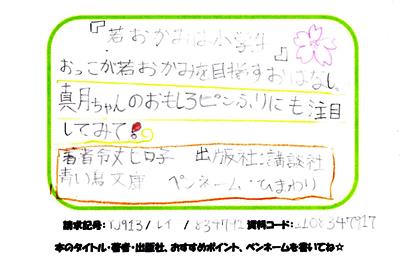 『若おかみは小学生』
おっこが若おかみを目指すおはなし。
真月ちゃんのおもしろピンふりにも注目
してみて!
著者令丈ヒロ子 出版社:講談社
青い鳥文庫 ペンネーム・ひまわり
請求記号: 913 / レイ / 資料コード:
本のタイトル・著者・出版社、おすすめポイント、ペンネームを書いてね☆